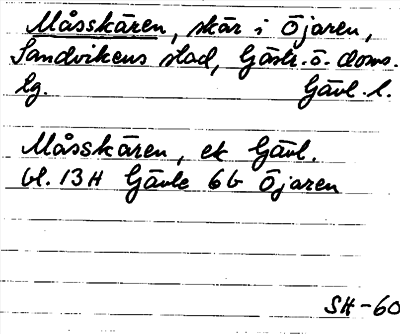 Måsskären, skär i Öjaren,
Sandvikens stad, Gästr. ö. doms.
lg. Gävl. l.
Måsskären, ek Gävl.
bl. 13H Gävle 6b Öjaren
SH-60